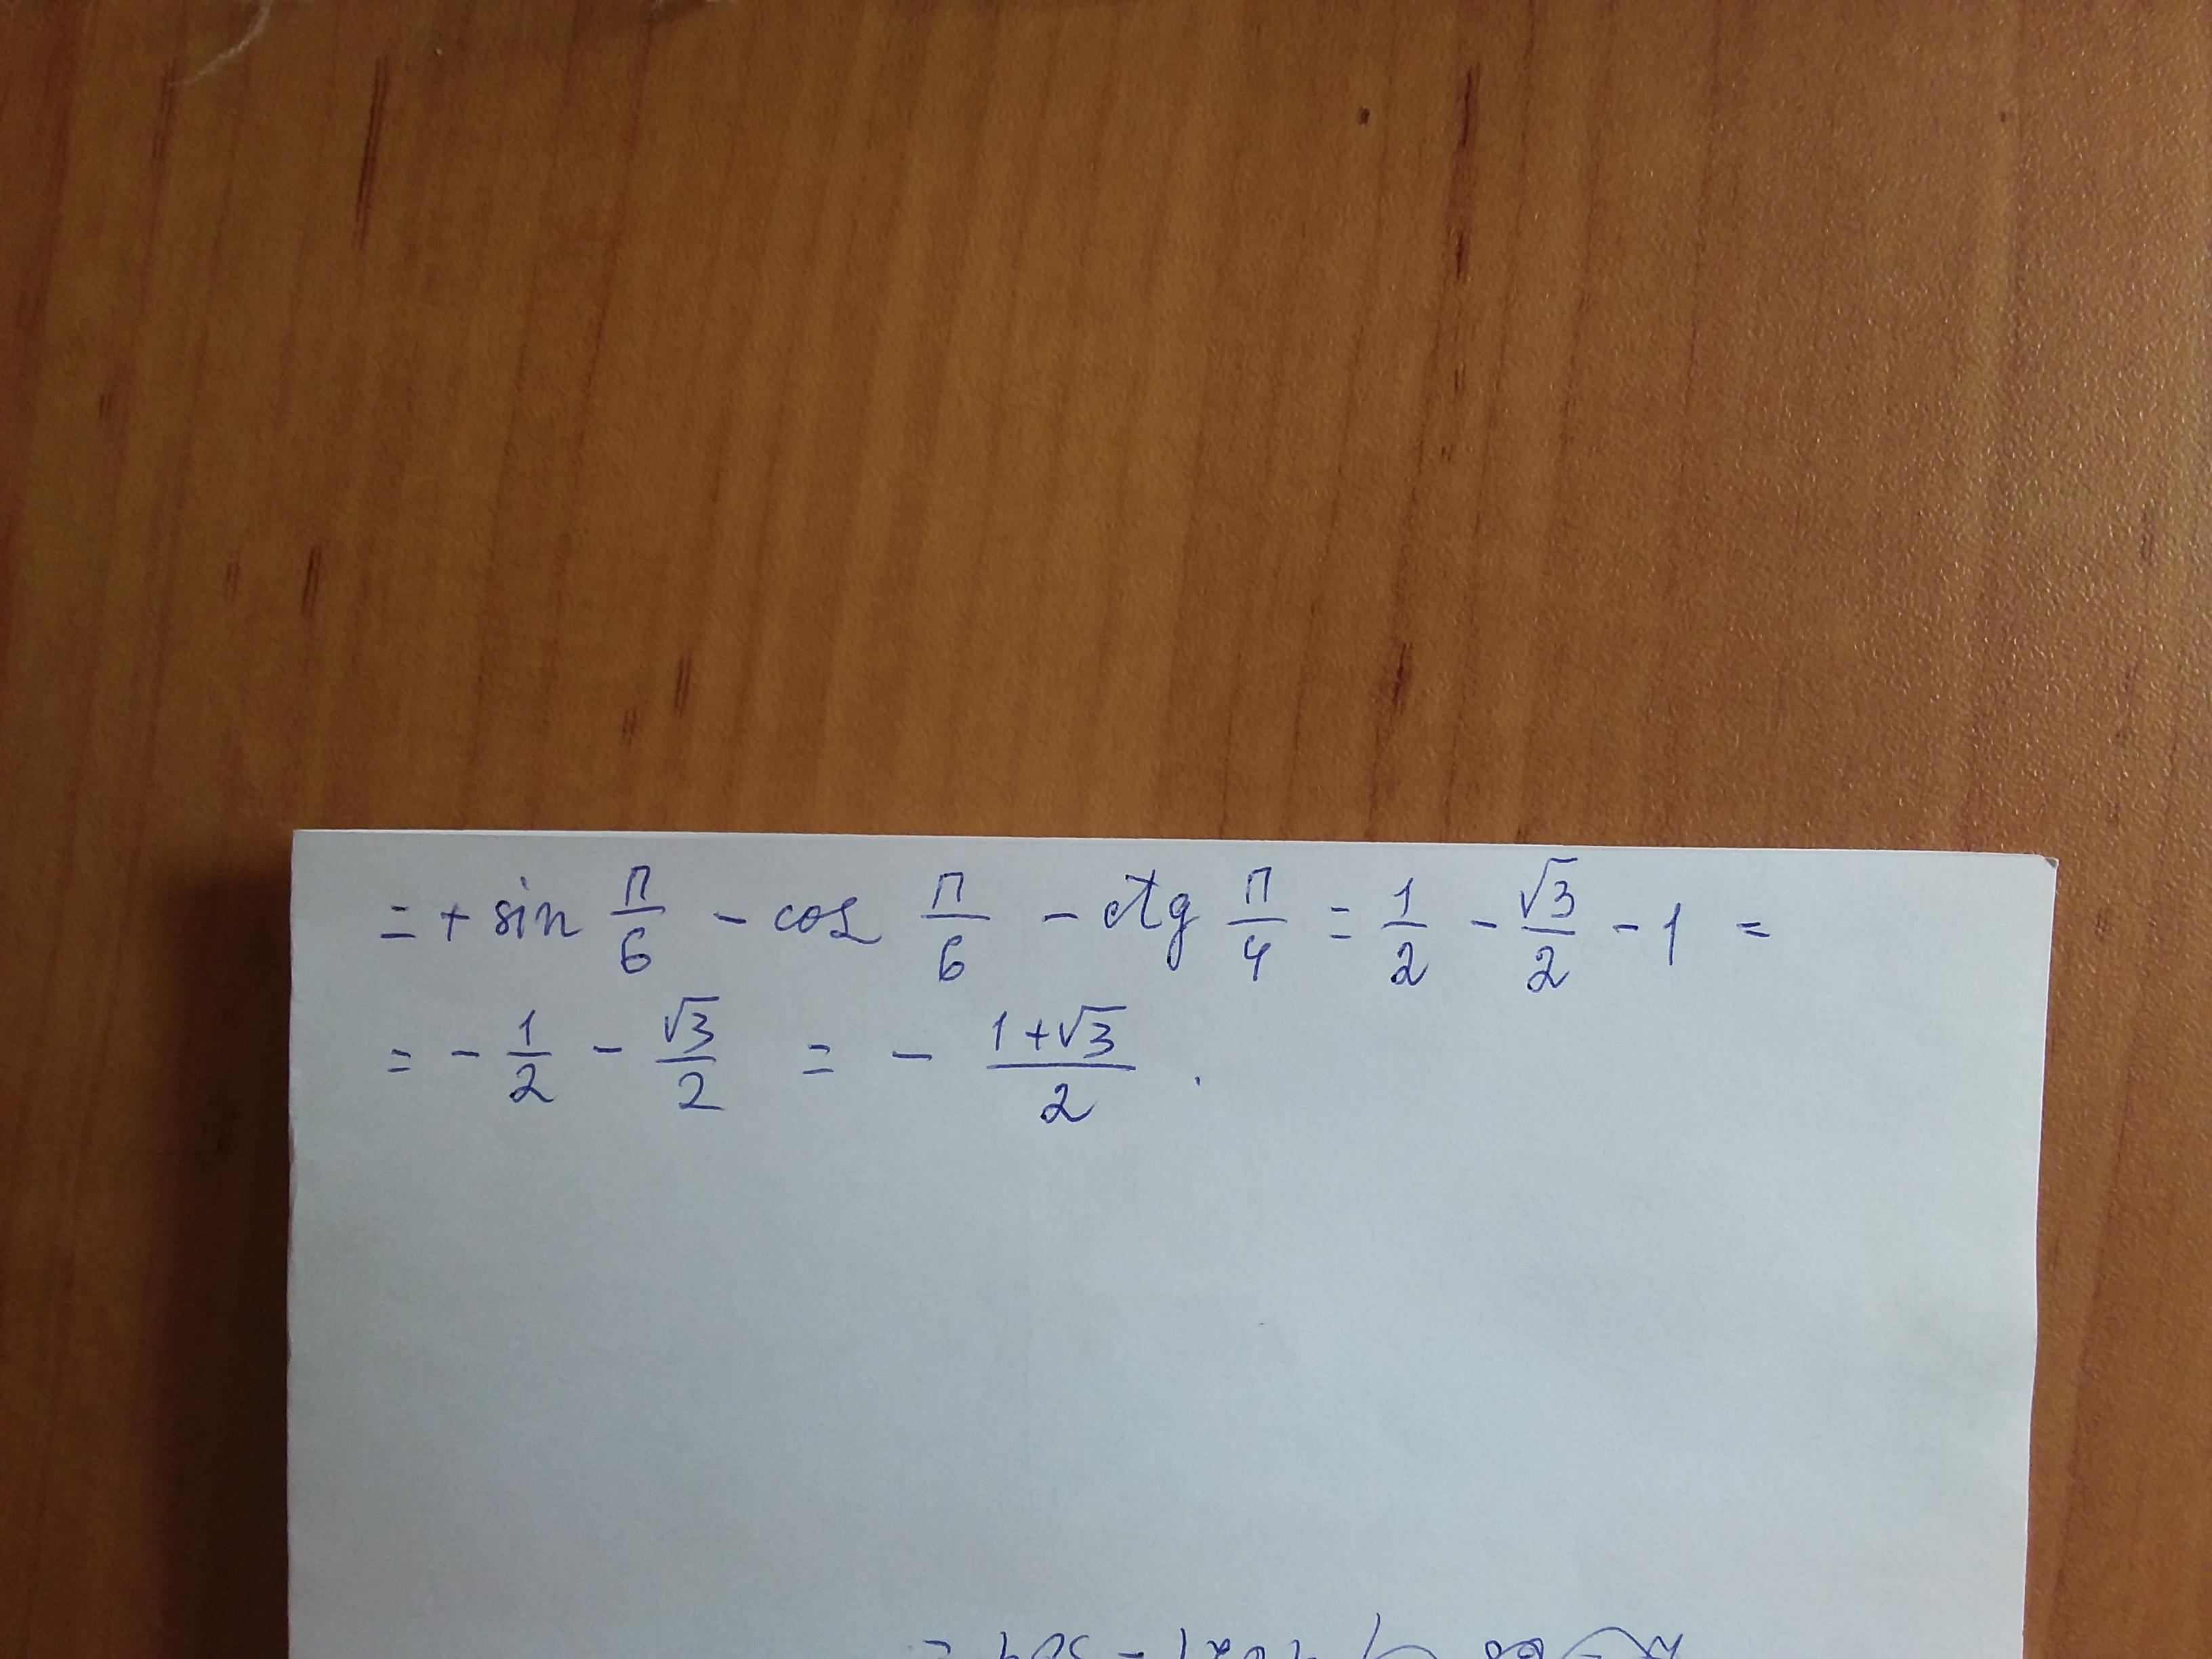 = + sin π/6 - cos π/6 - ctg π/4 = 1/2 - √3/2 - 1 =
= - 1/2 - √3/2 = - (1+√3)/2 .